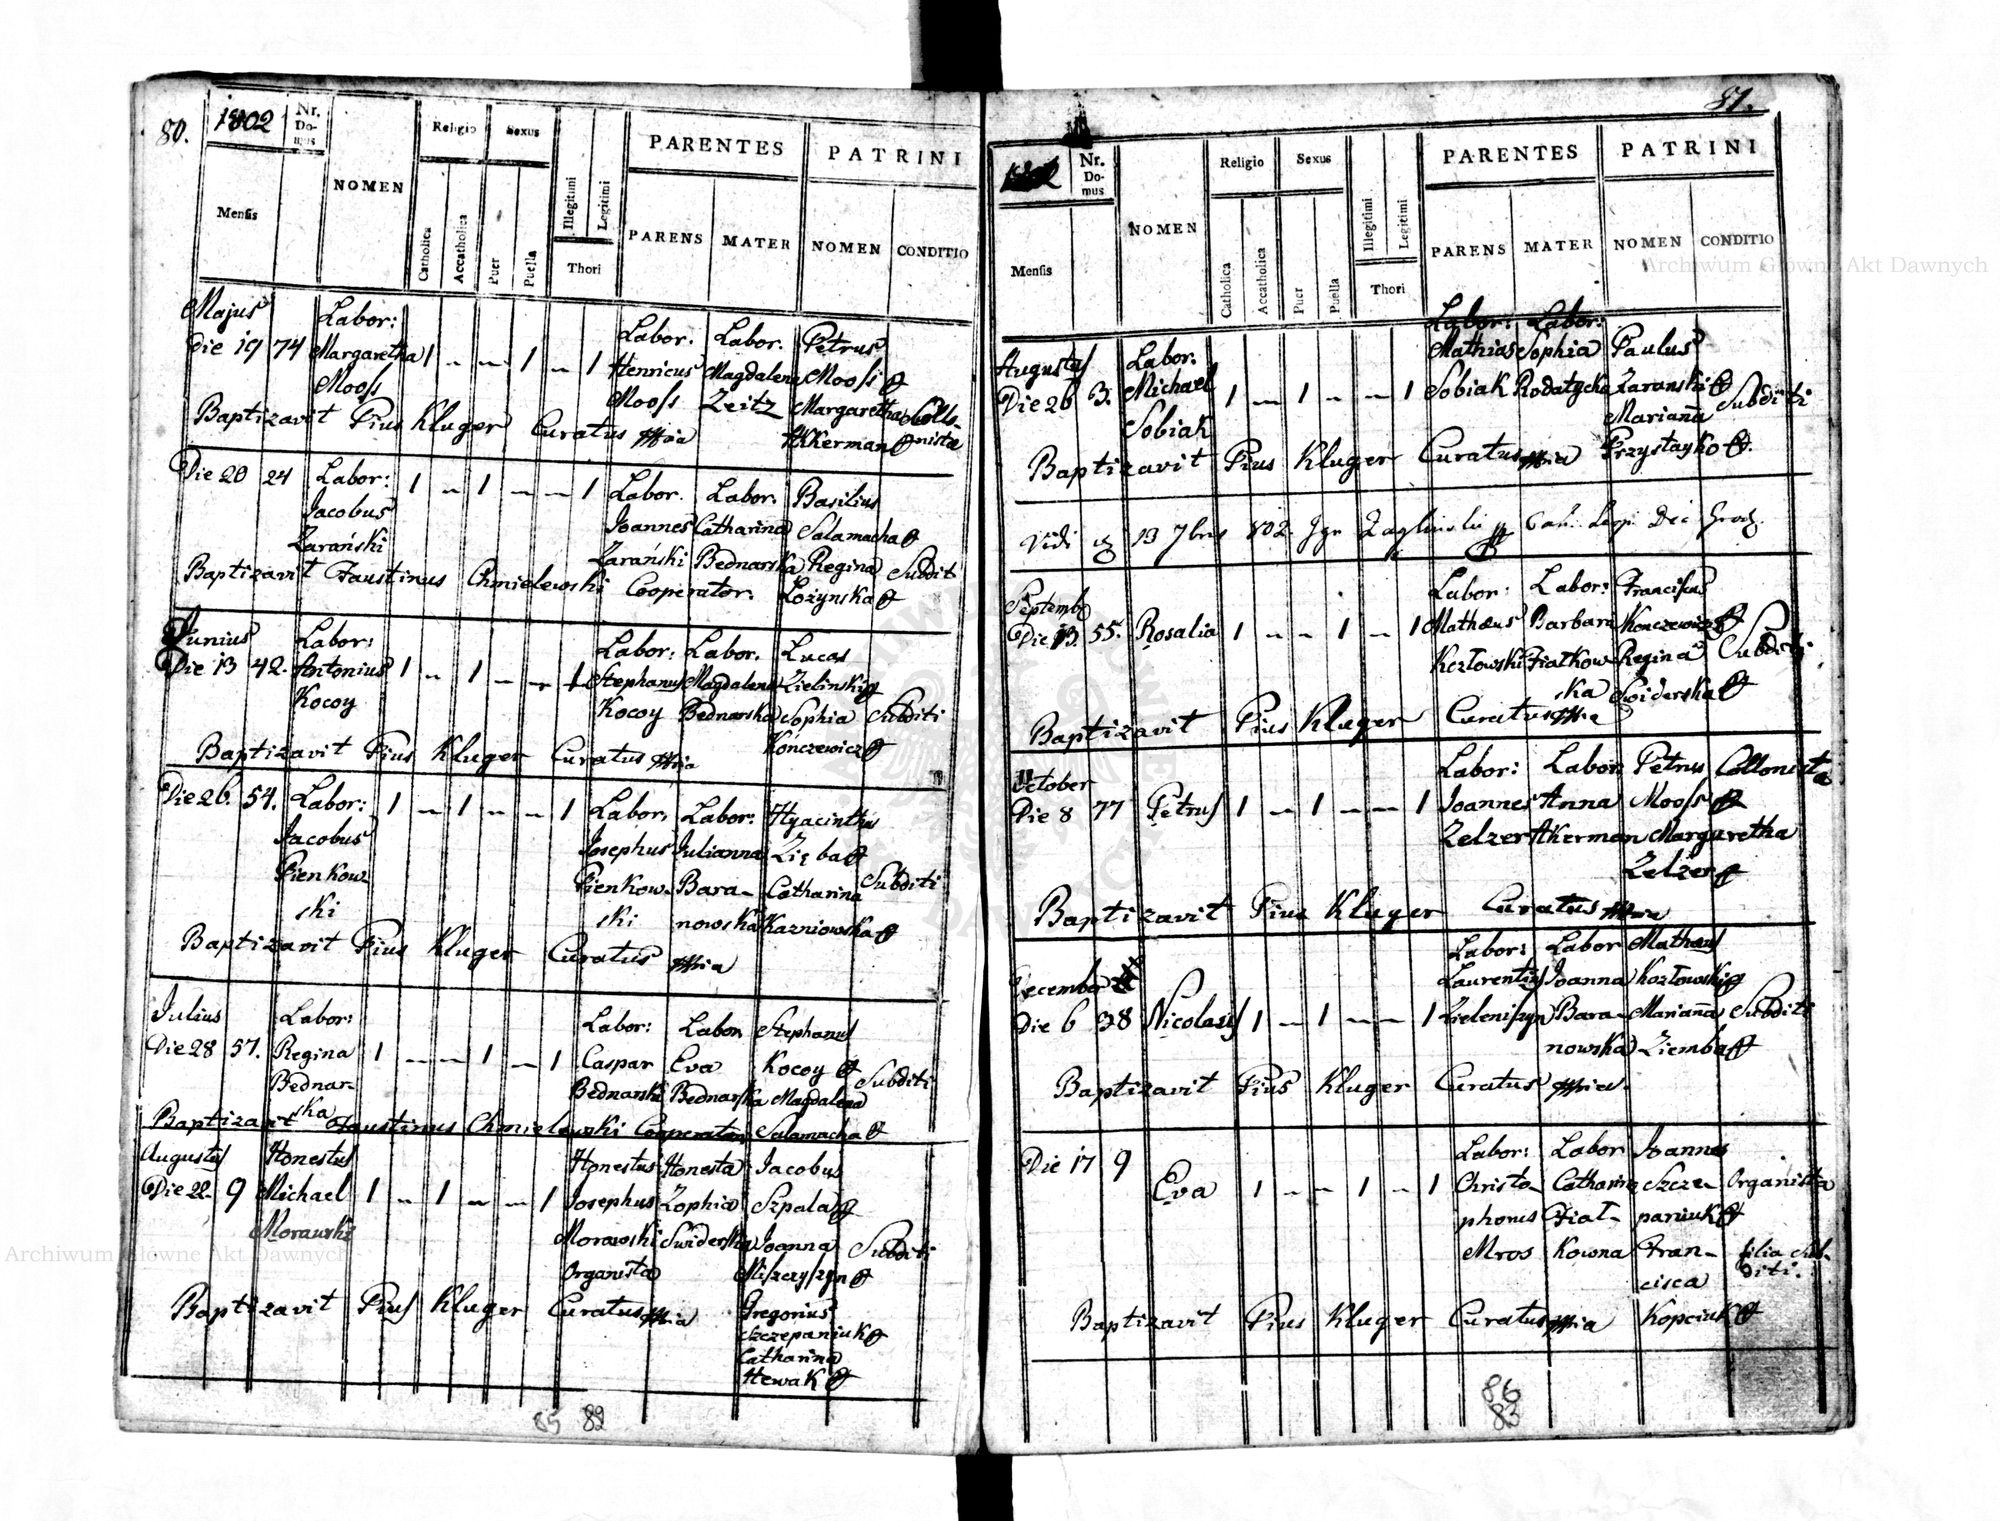 80.
1802
Nr. Do- mus
NOMEN
Religio
Sexus
PARENTES
PATRINI
Mensis
Catholica
Accatholica
Puer
Puella
Illegitimi
Legitimi
Thori
PARENS
MATER
NOMEN
CONDITIO
Majus
Labor:
Labor.
Labor.
Petrus
Die 19 74 Margaretha 1 - - 1 - 1 Henricus Magdalena Mooss
Mooss
Mooss Zeitz Margaretha Collo-
Baptizavit Pius Kluger Curatus mpria Akkerman nistae
Die 20 24 Labor: 1 - 1 - - 1 Labor. Labor. Basilius
Jacobus Joannes Catharina Salamacha
Zarański Zarański Bednarska Regina Subdit
Baptizavit Faustinus Chmielewski Cooperator. Lozynska
Junius Labor: Labor: Labor. Lucas
Die 13 42. Antonius 1 - 1 - - 1 Stephanus Magdalena Zielinski
Kocoy Kocoy Bednarska Sophia Subditi
Baptizavit Pius Kluger Curatus mpria Kończewicz
Die 26. 54. Labor: 1 - 1 - - 1 Labor. Labor: Hyacinthus
Jacobus Josephus Julianna Zięba
Pienkow- Pienkow- Bara- Catharina Subditi
ski ski nowska Kazniowska
Baptizavit Pius Kluger Curatus mpria
Julius Labor: Labor: Labor Stephanus
Die 28 57. Regina 1 - - 1 - 1 Caspar Eva Kocoy Subditi
Bednar- Bednarski Bednarska Magdalena
ska
Baptizavit Faustinus Chmielewski Cooperator Salamacha
Augustus Honestus Honestus Honesta Jacobus
Die 22. 9 Michael 1 - 1 - - 1 Josephus Zophia Szpala
Morawski Morawski Swiderska Joanna Subditi
Organista Miszczyszyn
Baptizavit Pius Kluger Curatus mpria Gregorius
Szczepaniuk
Catharina
Hewak
85 82
81.
1802
Nr. Do- mus
NOMEN
Religio
Sexus
PARENTES
PATRINI
Mensis
Catholica
Accatholica
Puer
Puella
Illegitimi
Legitimi
Thori
PARENS
MATER
NOMEN
CONDITIO
Labor: Labor:
Augustus Labor: Mathias Sophia Paulus
Die 26 3. Michael 1 - 1 - - 1 Sobiak Rodatycka Zaranski Subditi
Sobiak Marianna
Baptizavit Pius Kluger Curatus mpria Przystayko
Vidi 13 7bris 802.
Septemb Labor: Labor: Franciscus
Die 13 55. Rosalia 1 - - 1 - 1 Mathaeus Barbara Konczewicz Subditi
Kozłowski Fiatkow- Regina
ska Swiderska
Baptizavit Pius Kluger Curatus mpria
October Labor: Labor: Petrus Collonista
Die 8 77 Petrus 1 - 1 - - 1 Joannes Anna Mooss
Zelzer Akerman Margaretha
Zelzer
Baptizavit Pius Kluger Curatus mpria
Labor: Labor Mathaeus
December Laurentius Joanna Kozłowski
Die 6 38 Nicolaus 1 - 1 - - 1 Zieleniszyn Bara- Marianna Subditi
nowska Ziemba
Baptizavit Pius Kluger Curatus mpria.
Die 17 9 Labor: Labor Joannes
Eva 1 - - 1 - 1 Christo- Catharina Szcze- Organista
phorus Fiał- paniuk
Mros kowna Fran- filia Sub-
cisca diti.
Baptizavit Pius Kluger Curatus mpria Kopciuk
86
83
Archiwum Główne Akt Dawnych
Archiwum Główne Akt Dawnych